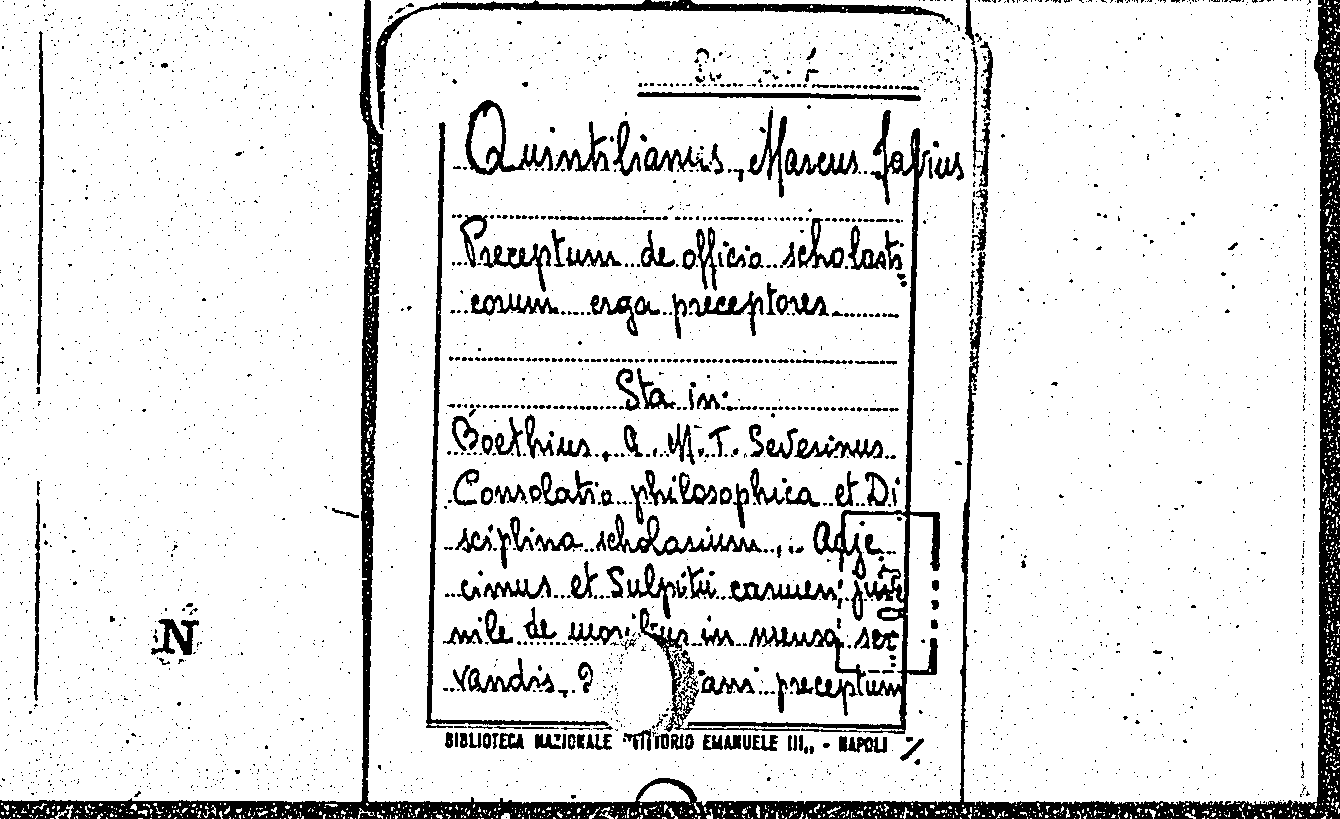 Quintilianus, Marcus Fabius
Preceptum de officio scholasti
corum erga preceptores.
Sta in:
Boethius, A. M. T. Severinus
Consolatio philosophica et Di
sciplina scholarium,.. Adje
cimus et Sulpitii carmen juve
nile de moribus in mensa ser
vandis, preceptum
BIBLIOTECA NAZIONALE "VITTORIO EMANUELE III,, - NAPOLI %
N